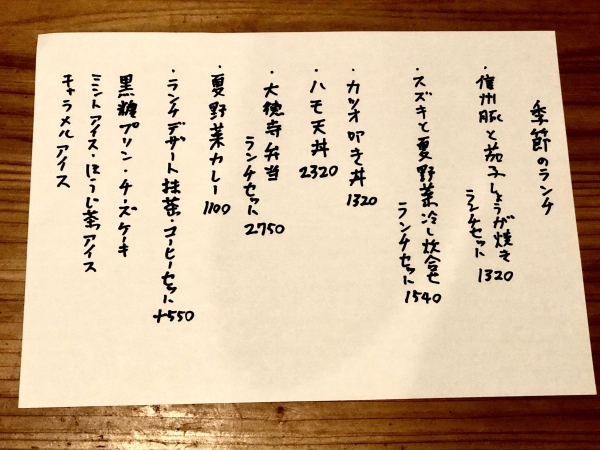 季節のランチ
・信州豚と茄子しょうが焼き
ランチセット 1320
・スズキと夏野菜冷し炊合せ
ランチセット 1540
・カツオ叩き丼 1320
・ハモ天丼 2320
・大徳寺弁当
ランチセット 2750
・夏野菜カレー 1100
・ランチデザート 抹茶・コーヒーセット +550
黒糖プリン・チーズケーキ
ミントアイス・ほうじ茶アイス
キャラメルアイス